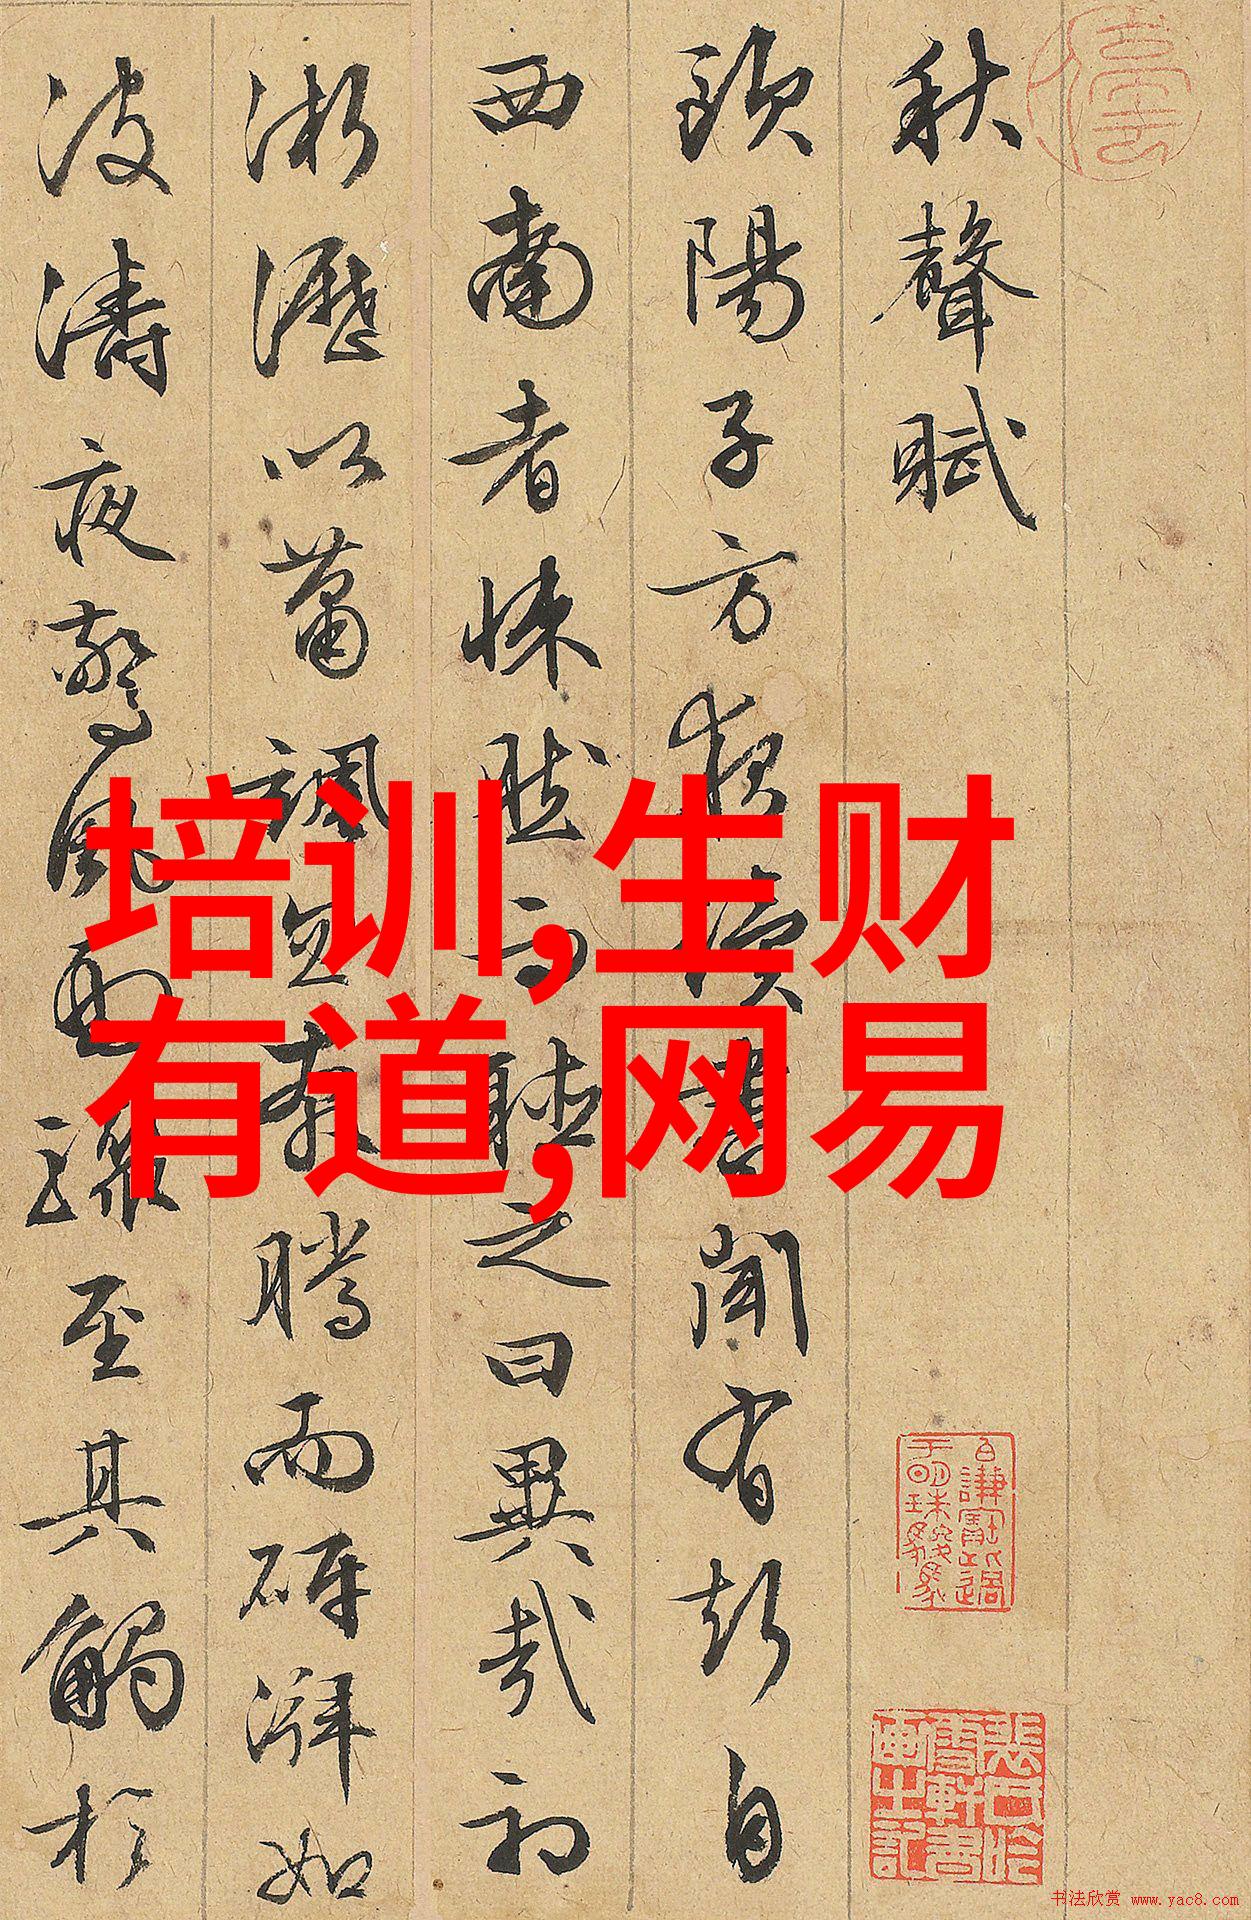 秋聲賦
歐陽子方夜讀書聞有聲自
西南者悚然而聽之曰異哉初
淅瀝以蕭颯忽奔騰而砰湃如
波濤夜驚風雨驟至其觸於
培训,生财
有道,网易
书法欣赏 www.yac8.com